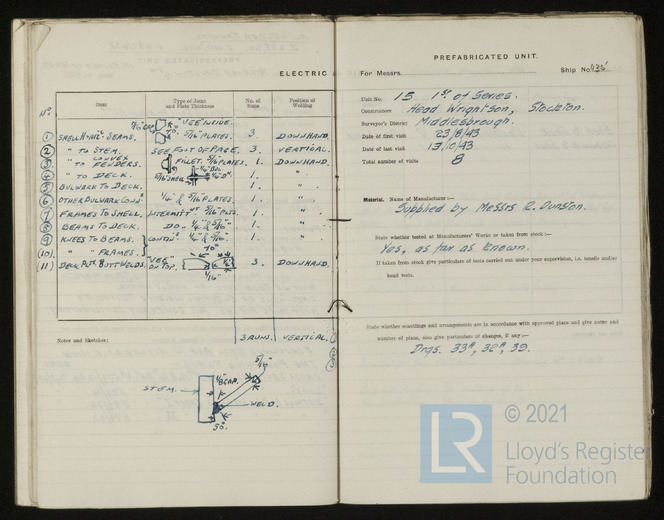 ELECTRIC
Item
Type of Joint and Plate Thickness
No. of Runs
Position of Welding
No.
(1) SHELL SEAMS. "VEE INSIDE. 5/16" PLATES. 3. DOWNHAND.
(2) " TO STEM. SEE FOOT OF PAGE. 3. VERTICAL.
(3) " TO CONVEX FENDERS. FILLET. 5/16" PLATES. 1. DOWNHAND.
(4) " TO DECK. 5/16" SHELL 1. "
(5) BULWARK TO DECK. 1. "
(6) OTHER BULWARK CONNS 1/4" & 5/16" PLATES. 1. "
(7) FRAMES TO SHELL. INTERMITTNT 5/16" PLTS. 1. "
(8) BEAMS TO DECK. DO. 1/4" & 5/16" 1. "
(9) KNEES TO BEAMS. CONTINS. 1/4" & 5/16" 1. "
(10) " " FRAMES.
(11) DECK PLTE BUTT WELDS. "VEE" ON TOP. 70° 1/16" 3. DOWNHAND.
Notes and Sketches:
3 RUNS. VERTICAL.
5/16"
1/8" GAP.
STEM.
WELD.
50°
PREFABRICATED UNIT.
For Messrs. Ship No. 435
Unit No. 15 1st of Series.
Constructors Head Wrightson, Stockton.
Surveyor's District Middlesbrough.
Date of first visit 23/8/43
Date of last visit 13/10/43
Total number of visits 8
Material. Name of Manufacturer:—
Supplied by Messrs R. Dunston.
State whether tested at Manufacturers' Works or taken from stock:—
Yes, as far as known.
If taken from stock give particulars of tests carried out under your supervision, i.e. tensile and/or
bend tests.
State whether scantlings and arrangements are in accordance with approved plans and give name and
number of plans, also give particulars of changes, if any:—
Drgs. 33A, 38A, 39.
© 2021
LR
Lloyd's Register
Foundation